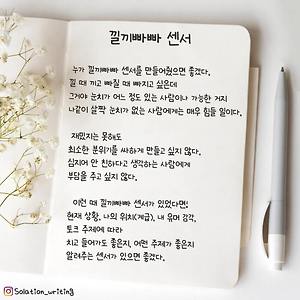 낄끼빠빠 센서
누가 낄끼빠빠 센서를 만들어줬으면 좋겠다.
낄 때 끼고 빠질 때 빠지고 싶은데
그게야 눈치가 어느 정도 있는 사람이나 가능한 거지
나같이 살짝 눈치가 없는 사람에게는 매우 힘들 일이다.
재밌지는 못해도
최소한 분위기를 싸하게 만들고 싶지 않다.
심지어 안 친하다고 생각하는 사람에게
부담을 주고 싶지 않다.
이런 때 낄끼빠빠 센서가 있었다면!
현재 상황, 나의 위치(계급), 내 유머 감각,
토크 주제에 따라
치고 들어가도 좋은지, 어떤 주제가 좋은지
알려주는 센서가 있으면 좋겠다.
@Solation_writing